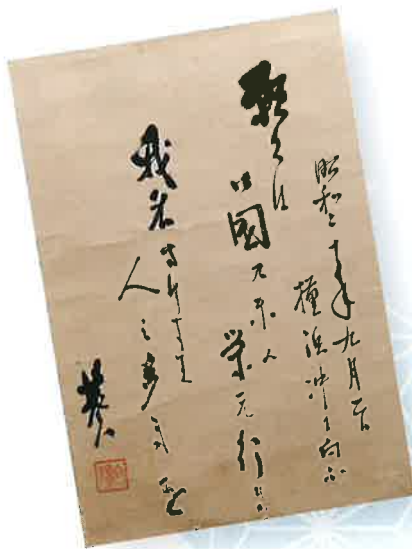 昭和二十年九月二日
横浜沖に向ふ
願くは
御國乃末の
栄え行き
我名
さけすむ
人之多きを